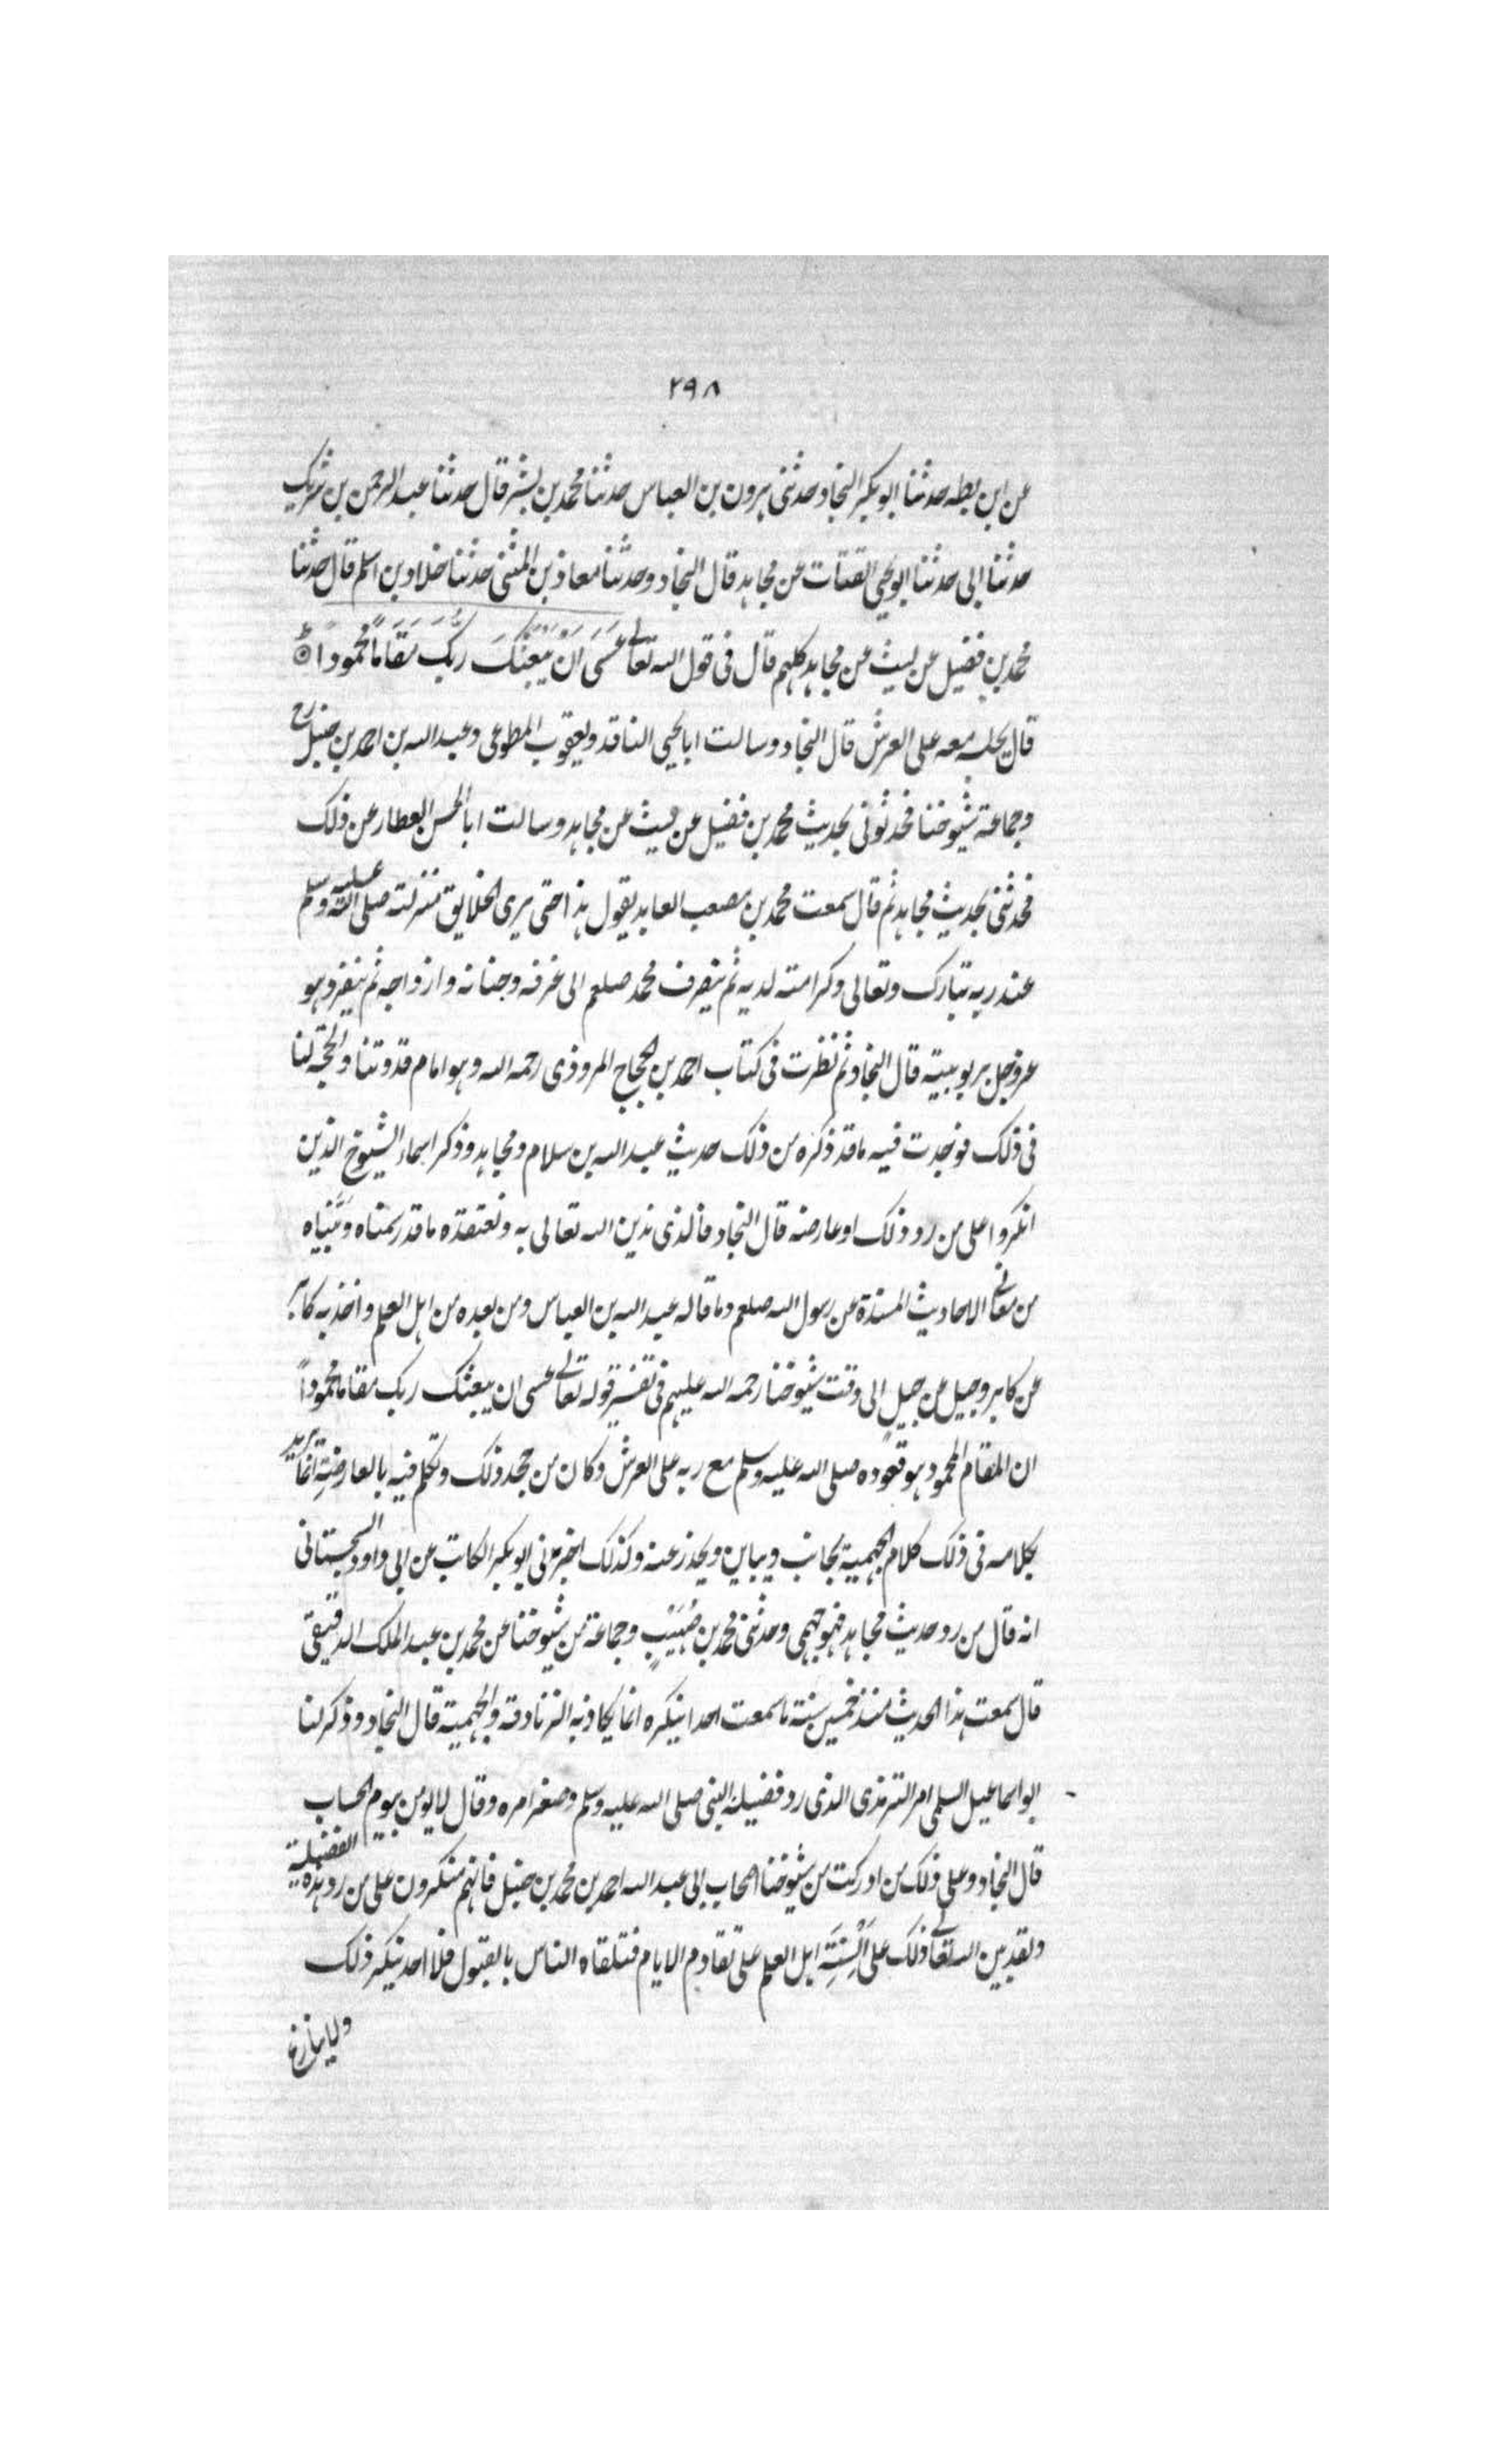 ٢٩٨
عن ابن بطه حدثنا ابو بكر النجاد حدثنى هرون بن العباس حدثنا محمد بن بشر قال حدثنا عبد الرحمن بن شريك
حدثنا ابى حدثنا ابو يحيى القتات عن مجاهد قال النجاد وحدثنا معاذ بن المثنى حدثنا خلاد بن اسلم قال حدثنا
محمد بن فضيل عن ليث عن مجاهد كلهم قال فى قول الله تعالى عَسَى اَن يَّبْعَثَكَ رَبُّكَ مَقَامًا مَّحْمُودًا
قال يجلسه معه على العرش قال النجاد وسالت ابا يحيى الناقد ويعقوب المطوعى وعبد الله بن احمد بن حنبل رح
وجماعة شيوخنا فحدثونى بحديث محمد بن فضيل عن ليث عن مجاهد وسالت ابا الحسن العطار عن ذلك
فحدثنى بحديث مجاهد ثم قال سمعت محمد بن مصعب العابد يقول هذا حتى يرى الخلايق منزلته صلى الله عليه وسلم
عند ربه تبارك وتعالى وكرامته لديه ثم ينصرف محمد صلعم الى غرفه وجنانه وازواجه ثم ينفرد هو
عز وجل بربوبيته قال النجاد ثم نظرت فى كتاب احمد بن الحجاج المروذى رحمه الله وهو امام قدوتنا والحجة لنا
فى ذلك فوجدت فيه ما قد ذكره من ذلك حديث عبد الله بن سلام ومجاهد وذكر اسماء الشيوخ الذين
انكروا على من رد ذلك او عارضه قال النجاد فالذى ندين الله تعالى به ونعتقده ما قد رسمناه وبَيَّناه
من معانى الاحاديث المسندة عن رسول الله صلعم وما قاله عبد الله بن العباس ومن بعده من اهل العلم واخذ به كابر
عن كابر وجيل عن جيل الى وقت شيوخنا رحمه الله عليهم فى تفسير قوله تعالى عسى ان يبعثك ربك مقاما محمودًا
ان المقام المحمود هو قعوده صلى الله عليه وسلم مع ربه على العرش وكان من جحد ذلك وتكلم فيه بالمعارضة انما يريد
بكلامه فى ذلك كلام الجهمية يجانب ويباين ويحذر عنه وكذلك اخبرنى ابو بكر الكاتب عن ابى داود السجستانى
انه قال من رد حديث مجاهد فهو جهمى وحدثنى محمد بن صُهَيْبٍ وجماعة من شيوخنا عن محمد بن عبد الملك الدقيقى
قال سمعت هذا الحديث منذ خمسين سنة ما سمعت احدا ينكره انما يكاذبه الزنادقة والجهمية قال النجاد وذكر لنا
ابو اسماعيل السلمى امر الترمذى الذى رد فضيلة النبى صلى الله عليه وسلم وصغر امره وقال لا يومن بيوم الحساب
قال النجاد وعلى ذلك من ادركت من شيوخنا اصحاب ابى عبد الله احمد بن محمد بن حنبل فانهم منكرون على من رد هذه الفضيلة
ولقد بين الله تعالى ذلك على اَلْسِنَةِ اهل العلم على تقادم الايام فتلقاه الناس بالقبول فلا احد ينكر ذلك
ولا ينازع